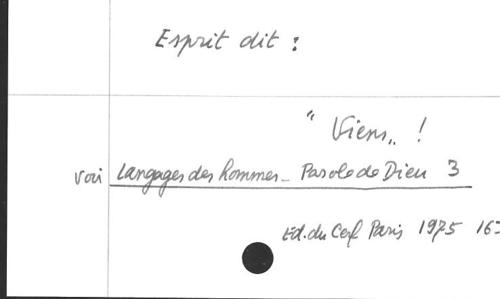 Esprit dit :
" Viens „ !
voir Langages des hommes - Parole de Dieu 3
Ed. du Cerf Paris 1975 16